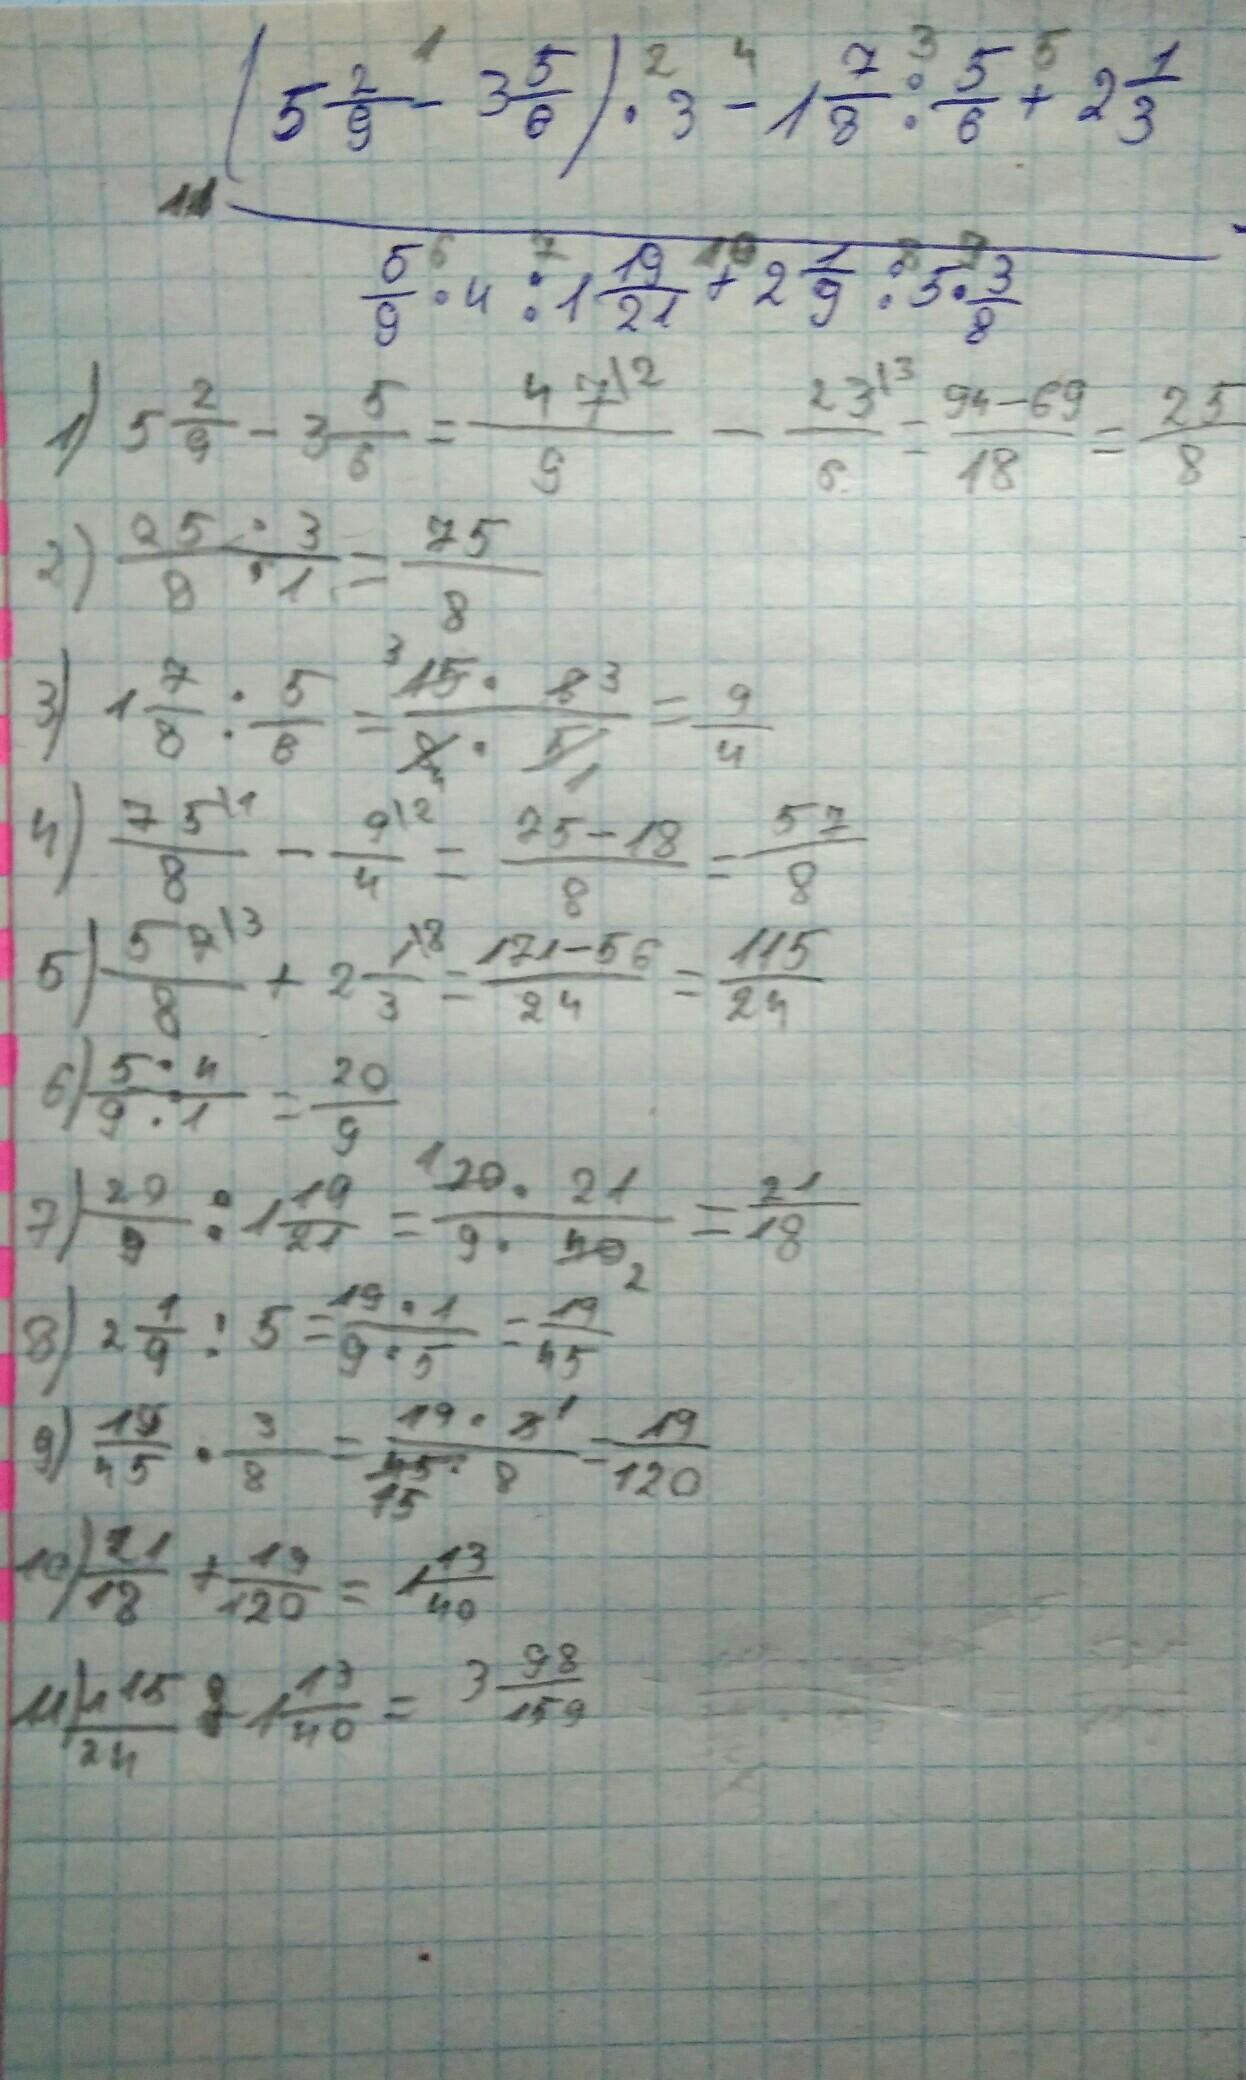 (5 2/9 - 3 5/6) · 3 - 1 7/8 : 5/6 + 2 1/3
5/9 · 4 : 1 19/21 + 2 1/9 : 5 · 3/8
1) 5 2/9 - 3 5/6 = 47\2/9 - 23\3/6 = 94-69/18 = 25/8
2) 25 · 3/8 · 1 = 75/8
3) 1 7/8 : 5/6 = 3 15 · 6 3/8 4 · 5 1 = 9/4
4) 75\1/8 - 9\2/4 = 75-18/8 = 57/8
5) 57\3/8 + 2 1\8/3 = 171-56/24 = 115/24
6) 5 · 4/9 · 1 = 20/9
7) 20/9 : 1 19/21 = 1 20 · 21/9 · 40 2 = 21/18
8) 2 1/9 : 5 = 19 · 1/9 · 5 = 19/45
9) 19/45 · 3/8 = 19 · 3 1/45 · 8 15 = 19/120
10) 21/18 + 19/120 = 1 13/40
11) 115/24 : 1 13/40 = 3 98/159